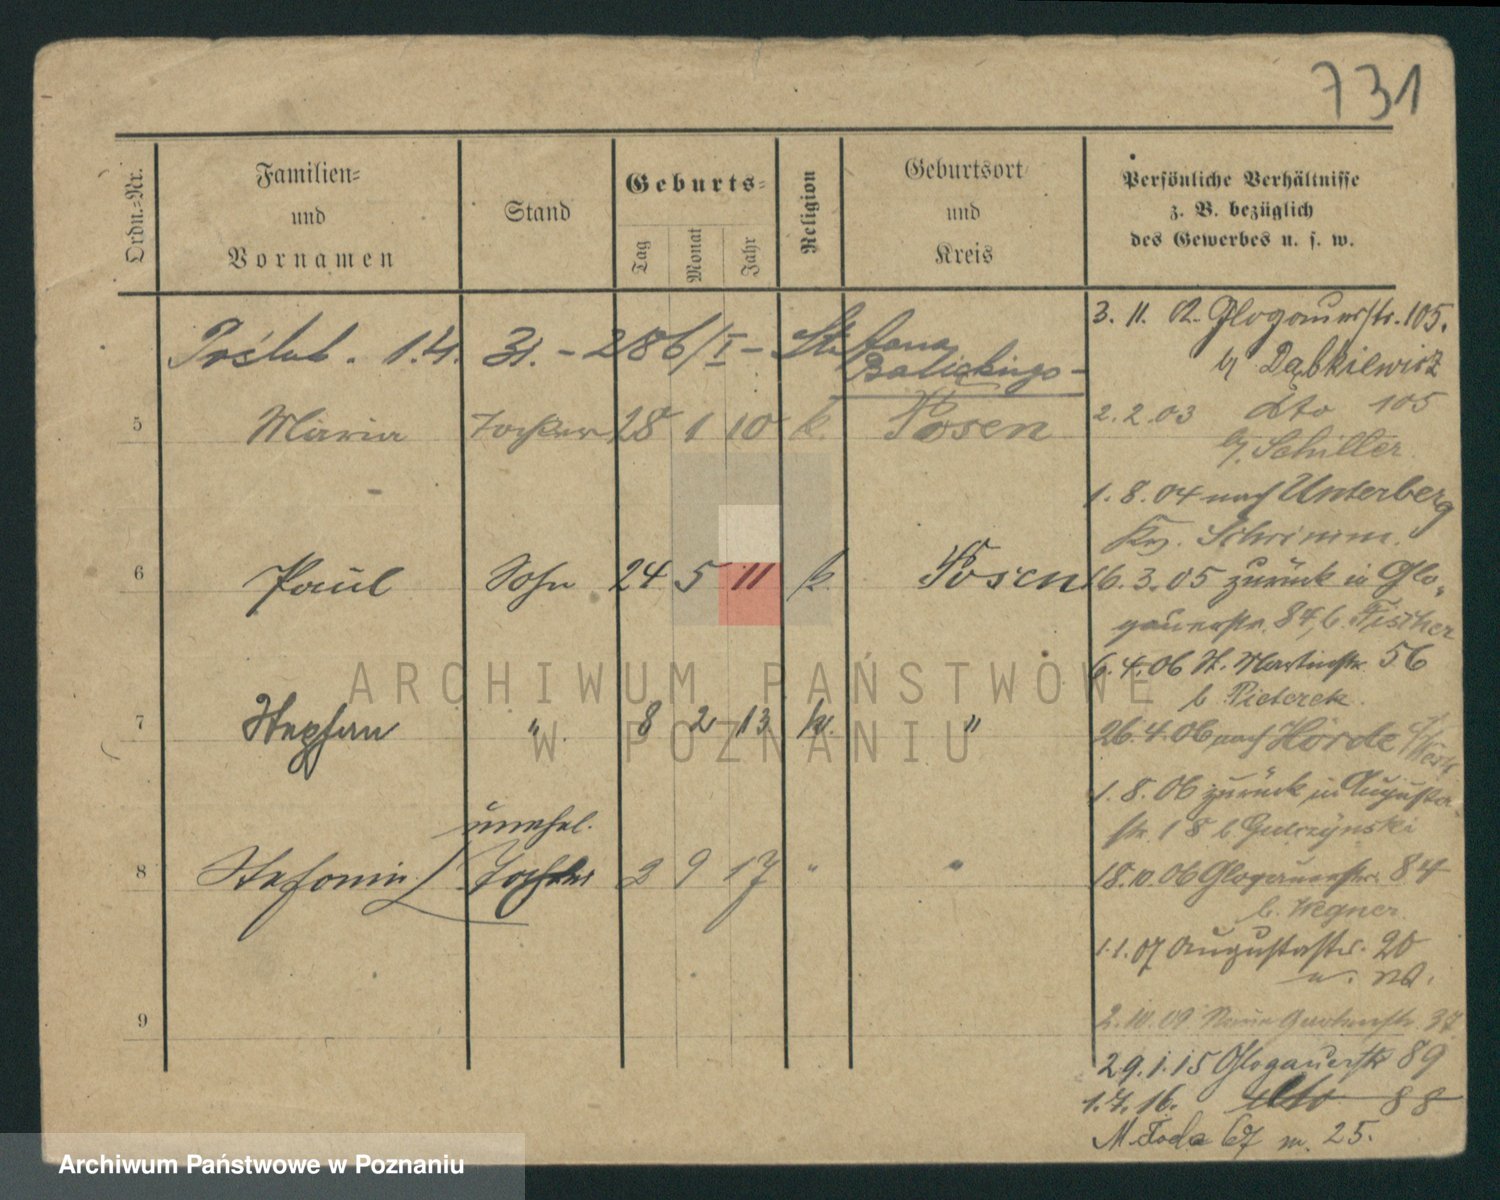 731
Ordn.-Nr.
Familien-
und
Vornamen
Stand
Geburts-
Tag
Monat
Jahr
Religion
Geburtsort
und
Kreis
Persönliche Verhältnisse
z. B. bezüglich
des Gewerbes u. s. w.
Pośłub. 1.4. 31. - 286/I - Stefana
Balickiego -
5 Maria Tochter 28 1 10 k. Posen
6 Paul Sohn 24 5 11 k. Posen
7 Stephan " 8 2 13 k. "
unehel.
8 Stefonia Tochter 2 9 17 " "
9
3. 11. 02. Glogauerstr. 105.
b/ Dąbkiewicz
2. 2. 03 dto 105
b/ Schiller
1. 8. 04 nach Unterberg
Kr. Schrimm.
16. 3. 05 zurück in Glo-
gauerstr. 87, b. Fischer
6. 4. 06 St. Martinstr. 56
b. Pieterek.
26. 4. 06 nach Hörde
1. 8. 06 zurück in Augusta-
str. 18 b Gulczynski
18. 10. 06 Glogauerstr. 84
b. Wegner.
1. 1. 07 Augustastr. 20
2. 10. 09 Neue Gartenstr. 37
29. 1. 15 Glogauerstr 89
1. 7. 16. dto 88
M. Focha 67 m. 25.
ARCHIWUM PAŃSTWOWE
W POZNANIU
Archiwum Państwowe w Poznaniu